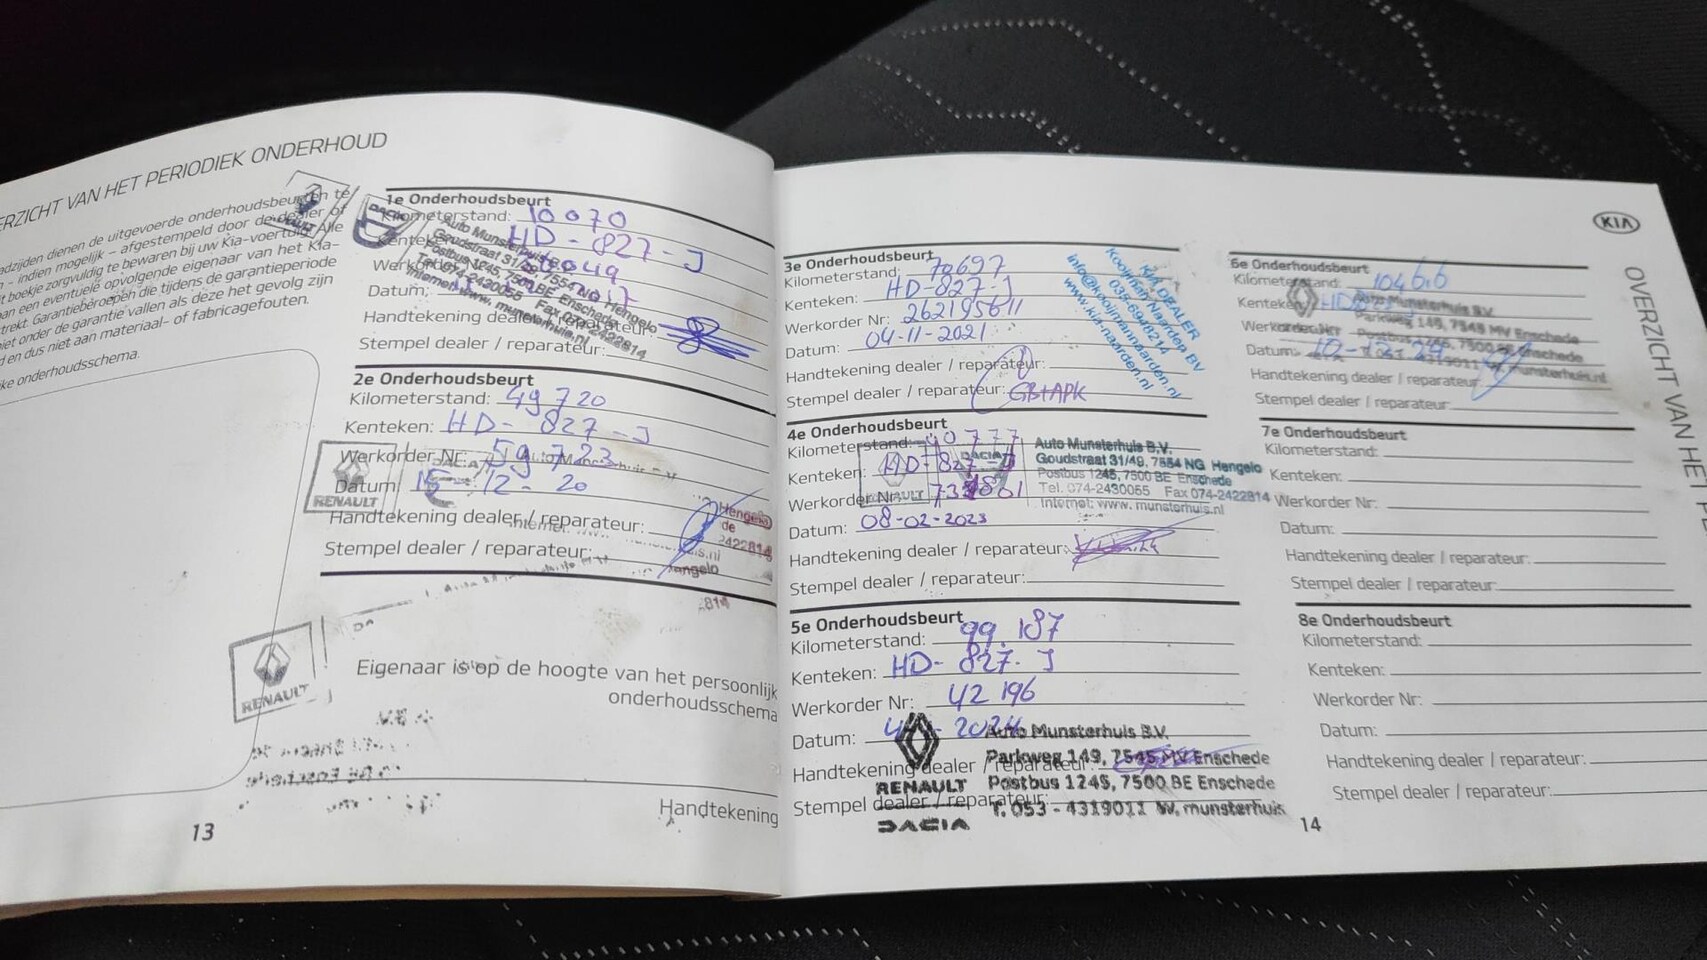 OVERZICHT VAN HET PERIODIEK ONDERHOUD
dienen de uitgevoerde onderhoudsbeurten te
indien mogelijk – afgestempeld door de dealer of
boekje zorgvuldig te bewaren bij uw Kia-voertuig. Alle
een eventuele opvolgende eigenaar van het Kia-
Garantieberoepen die tijdens de garantieperiode
niet onder de garantie vallen als deze het gevolg zijn
en dus niet aan materiaal- of fabricagefouten.
onderhoudsschema.
1e Onderhoudsbeurt
Kilometerstand: 10070
Kenteken: HD-827-J
Datum:
Handtekening dealer / reparateur:
Stempel dealer / reparateur:
DACIA
Auto Munsterhuis B.V.
Goudstraat 31/49, 7554 NG Hengelo
Postbus 1245, 7500 BE Enschede
Tel. 074-2430055 Fax 074-2422814
Internet: www. munsterhuis.nl
2e Onderhoudsbeurt
Kilometerstand: 49720
Kenteken: HD-827-J
Werkorder Nr: 59723
Datum: 15-12-20
Handtekening dealer / reparateur:
Stempel dealer / reparateur:
RENAULT
Hengelo
RENAULT
Eigenaar is op de hoogte van het persoonlijk
onderhoudsschema
Handtekening
13
3e Onderhoudsbeurt
Kilometerstand: 70697
Kenteken: HD-827-J
Werkorder Nr: 262195611
Datum: 04-11-2021
Handtekening dealer / reparateur:
Stempel dealer / reparateur: GB+APK
KIA DEALER
Kooijman Naarden BV
035-6948214
info@kooijmannaarden.nl
www.kia-naarden.nl
4e Onderhoudsbeurt
Kilometerstand:
Kenteken: HD-827-J
Werkorder Nr:
Datum: 08-02-2023
Handtekening dealer / reparateur:
Stempel dealer / reparateur:
RENAULT
DACIA
Auto Munsterhuis B.V.
Goudstraat 31/49, 7554 NG Hengelo
Postbus 1245, 7500 BE Enschede
Tel. 074-2430055 Fax 074-2422814
Internet: www. munsterhuis.nl
5e Onderhoudsbeurt
Kilometerstand: 99.187
Kenteken: HD-827-J
Werkorder Nr: 42196
Datum: 2024
Handtekening dealer / reparateur:
Stempel dealer / reparateur:
RENAULT
DACIA
Auto Munsterhuis B.V.
Parkweg 149, 7545 MV Enschede
Postbus 1245, 7500 BE Enschede
T. 053 - 4319011 W. munsterhuis
KIA
OVERZICHT VAN HET
6e Onderhoudsbeurt
Kilometerstand: 10466
Kenteken:
Werkorder Nr:
Datum:
Handtekening dealer / reparateur:
Stempel dealer / reparateur:
Auto Munsterhuis B.V.
Parkweg 149, 7545 MV Enschede
Postbus 1245, 7500 BE Enschede
T. 053 4319011 W. munsterhuis.nl
7e Onderhoudsbeurt
Kilometerstand:
Kenteken:
Werkorder Nr:
Datum:
Handtekening dealer / reparateur:
Stempel dealer / reparateur:
8e Onderhoudsbeurt
Kilometerstand:
Kenteken:
Werkorder Nr:
Datum:
Handtekening dealer / reparateur:
Stempel dealer / reparateur:
14